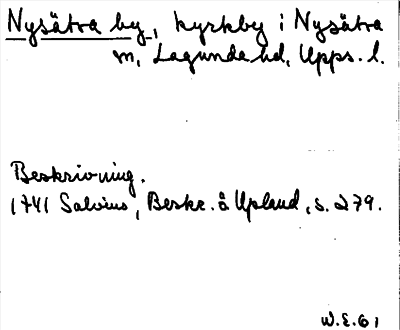 Nysätra by, kyrkby i Nysätra
m, Lagunda hd, Upps. l.
Beskrivning.
1741 Salvius, Beskr. å Upland, s. 279.
W.E.61